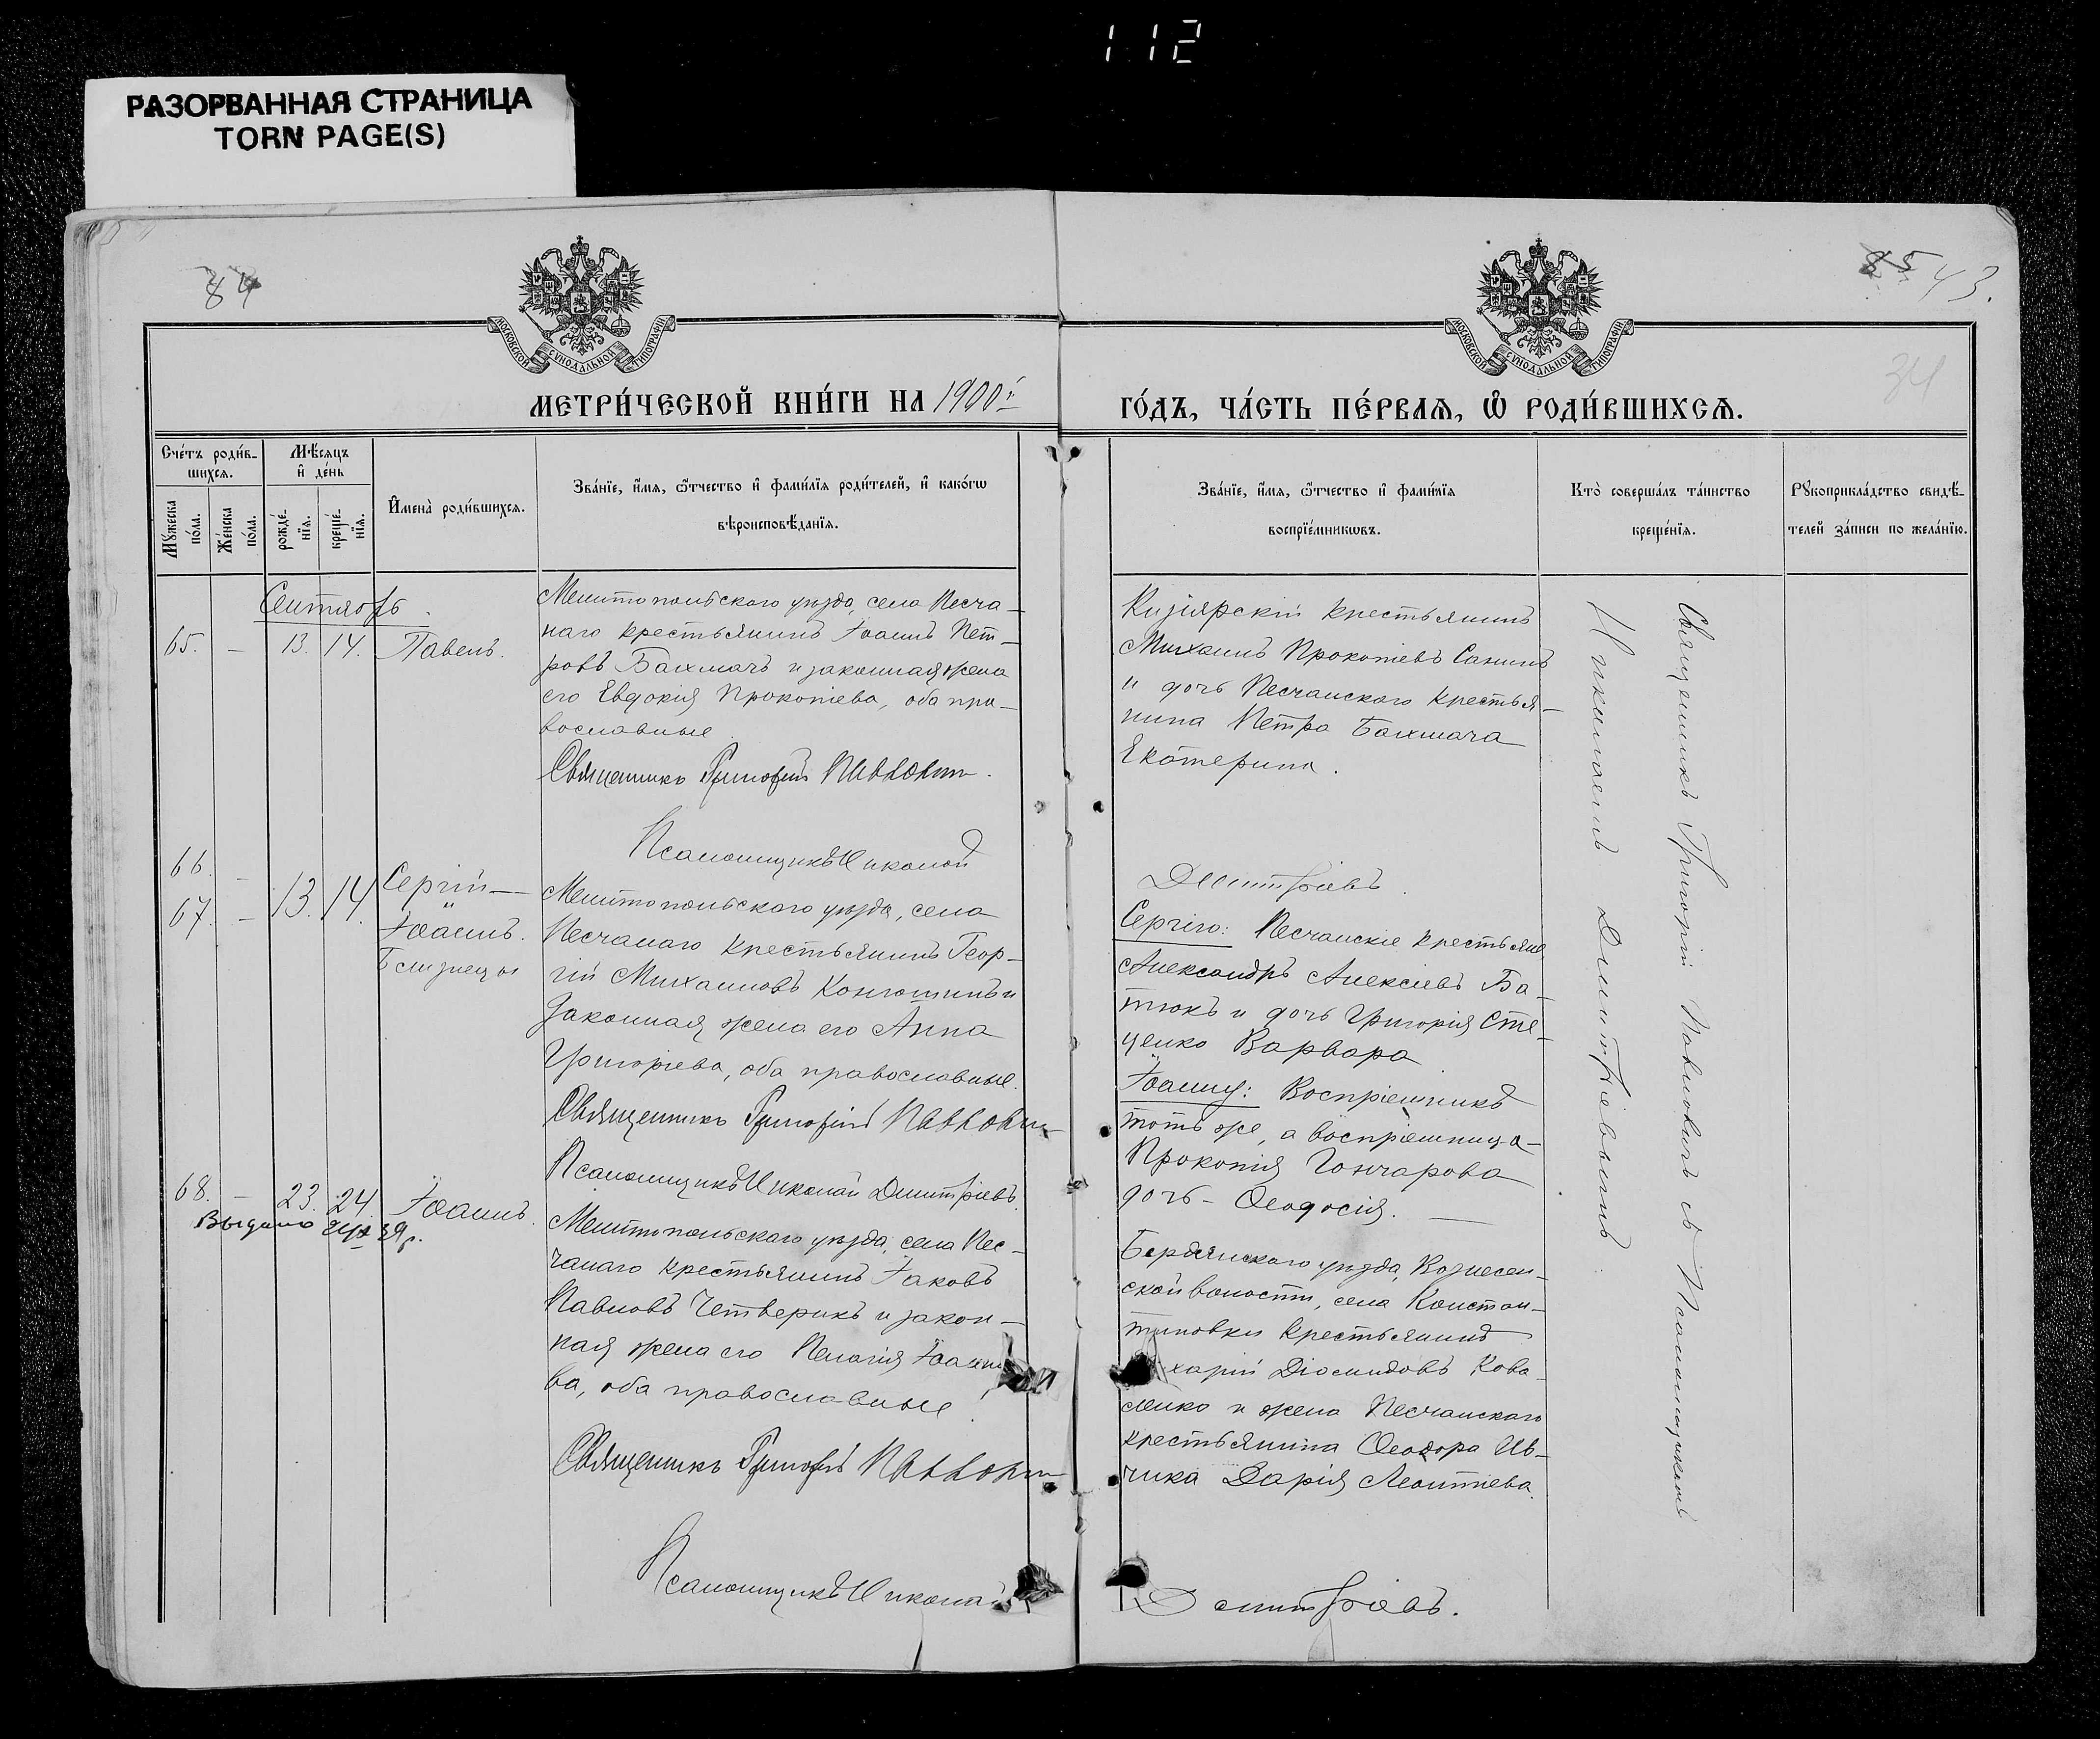 112
РАЗОРВАННАЯ СТРАНИЦА
TORN PAGE(S)
84
85 43.
34
МОСКОВСКОЙ СѴНОДАЛЬНОЙ ТИПОГРАФІИ
МОСКОВСКОЙ СѴНОДАЛЬНОЙ ТИПОГРАФІИ
МЕТРИ́ЧЕСКОЙ КНИ́ГИ НА 1900й
ГО́ДЪ, ЧА́СТЬ ПЕ́РВАѦ, Ѡ҆ РОДИ́ВШИХСѦ.
Сче́тъ роди́в-
шихсѧ.
Мꙋ́жеска по́ла.
Же́нска по́ла.
Мѣ́сѧцъ
и҆ де́нь
рожде́-
нїѧ.
креще́-
нїѧ.
И҆мена̀ роди́вшихсѧ.
Зва́нїе, и҆́мѧ, ѻ҆́тчество и҆ фами́лїѧ роди́телей, и҆ како́гѡ
вѣроисповѣ́данїѧ.
Зва́нїе, и҆́мѧ, ѻ҆́тчество и҆ фами́лїѧ
воспрїе́мникѡвъ.
Кто̀ соверша́лъ та́инство
креще́нїѧ.
Рꙋкоприкла́дство свидѣ́-
телей за́писи по жела́нїю.
Сентябрь.
65. – 13. 14. Павелъ.
Мелитопольскаго уѣзда, села Песча-
наго крестьянинъ Іоаннъ Пет-
ровъ Бахмачъ и законная жена
его Евдокія Прокопіева, оба пра-
вославные.
Священникъ Григорій Павловичъ.
Псаломщикъ Николай
Дмитріевъ.
Кизіярскій крестьянинъ
Михаилъ Прокопіевъ Санинъ
и дочь Песчанскаго крестья-
нина Петра Бахмача
Екатерина.
66. –
67. – 13. 14. Сергій –
Іоаннъ.
Близнецы
Мелитопольскаго уѣзда, села
Песчанаго крестьянинъ Геор-
гій Михаиловъ Конюшинъ и
законная жена его Анна
Григоріева, оба православные.
Священникъ Григорій Павловичъ
Псаломщикъ Николай Дмитріевъ.
Сергію: Песчанскіе крестьяне
Александръ Алексіевъ Ба-
тюкъ и дочь Григорія Сте-
ценко Варвара
Іоанну: Воспріемникъ
тотъ же, а воспріемница –
Прокопія Гончарова
дочь – Ѳеодосія. –
68. – 23. 24. Іоаннъ.
Выдано
Мелитопольскаго уѣзда, села Пес-
чанаго крестьянинъ Іаковъ
Павловъ Четверикъ и закон-
ная жена его Пелагія Іоанно
ва, оба православные.
Священникъ Григорій Павловичъ
Псаломщикъ Николай
Дмитріевъ.
Бердянскаго уѣзда, Вознесен-
ской волости, села Констан-
тиновки крестьянинъ
харій Діомидовъ Кова-
ленко и жена Песчанскаго
крестьянина Ѳеодора Ив-
чика Дарія Леонтіева.
Священникъ Григорій Павловичъ съ Псаломщикомъ
Николаемъ Дмитріевымъ.